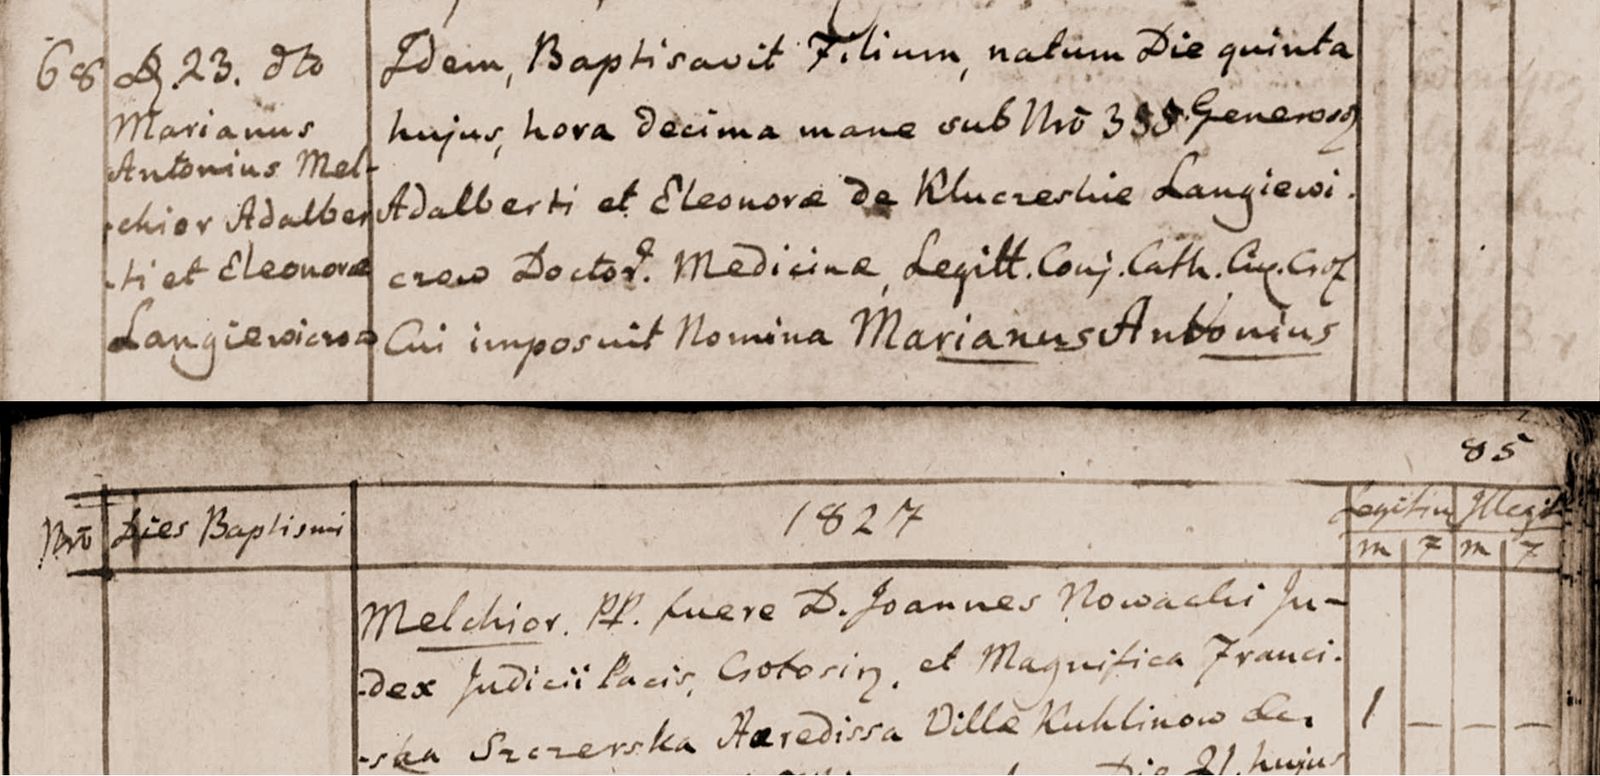 68
D. 23. dto
Marianus
Antonius Mel-
-chior Adalber
-ti et Eleonoræ
Langiewiczow
Idem, Baptisavit Filium, natum Die quinta
hujus, hora decima mane sub Nrō 338 Generosoꝝ
Adalberti et Eleonoræ de Kluczeskie Langiewi.
czow Doctor. Medicinæ, Legitt. Conj. Cath.
Cui imposuit Nomina Marianus Antonius
85
Nrō
Dies Baptismi
1827
Legitim
Illegit
m
f
m
f
Melchior. PP. fuere D. Joannes Nowacki Ju-
-dex Judicii Pacis, et Magnifica Franci.
-ska Szczerska Hæredissa Villæ Kuhlinow
1 – – –
Die 21. hujus